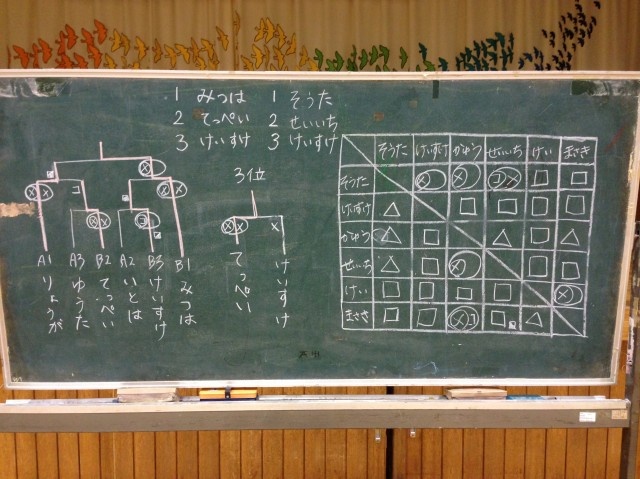 1 みつは 1 そうた
2 てっぺい 2 せいいち
3 けいすけ 3 けいすけ
3位
そうた けいすけ かゅう せいいち けい まさき
そうた
けいすけ
かゅう
せいいち
けい
まさき
A1 りょうが
A3 ゆうた
B2 てっぺい
A2 いとは
B3 けいすけ
B1 みつは
てっぺい
けいすけ